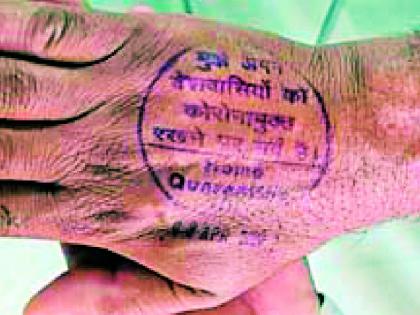 मुझे अपने
देशवासियों को
कोरोनामुक्त
रखने पर गर्व है।
Quarantine
APR